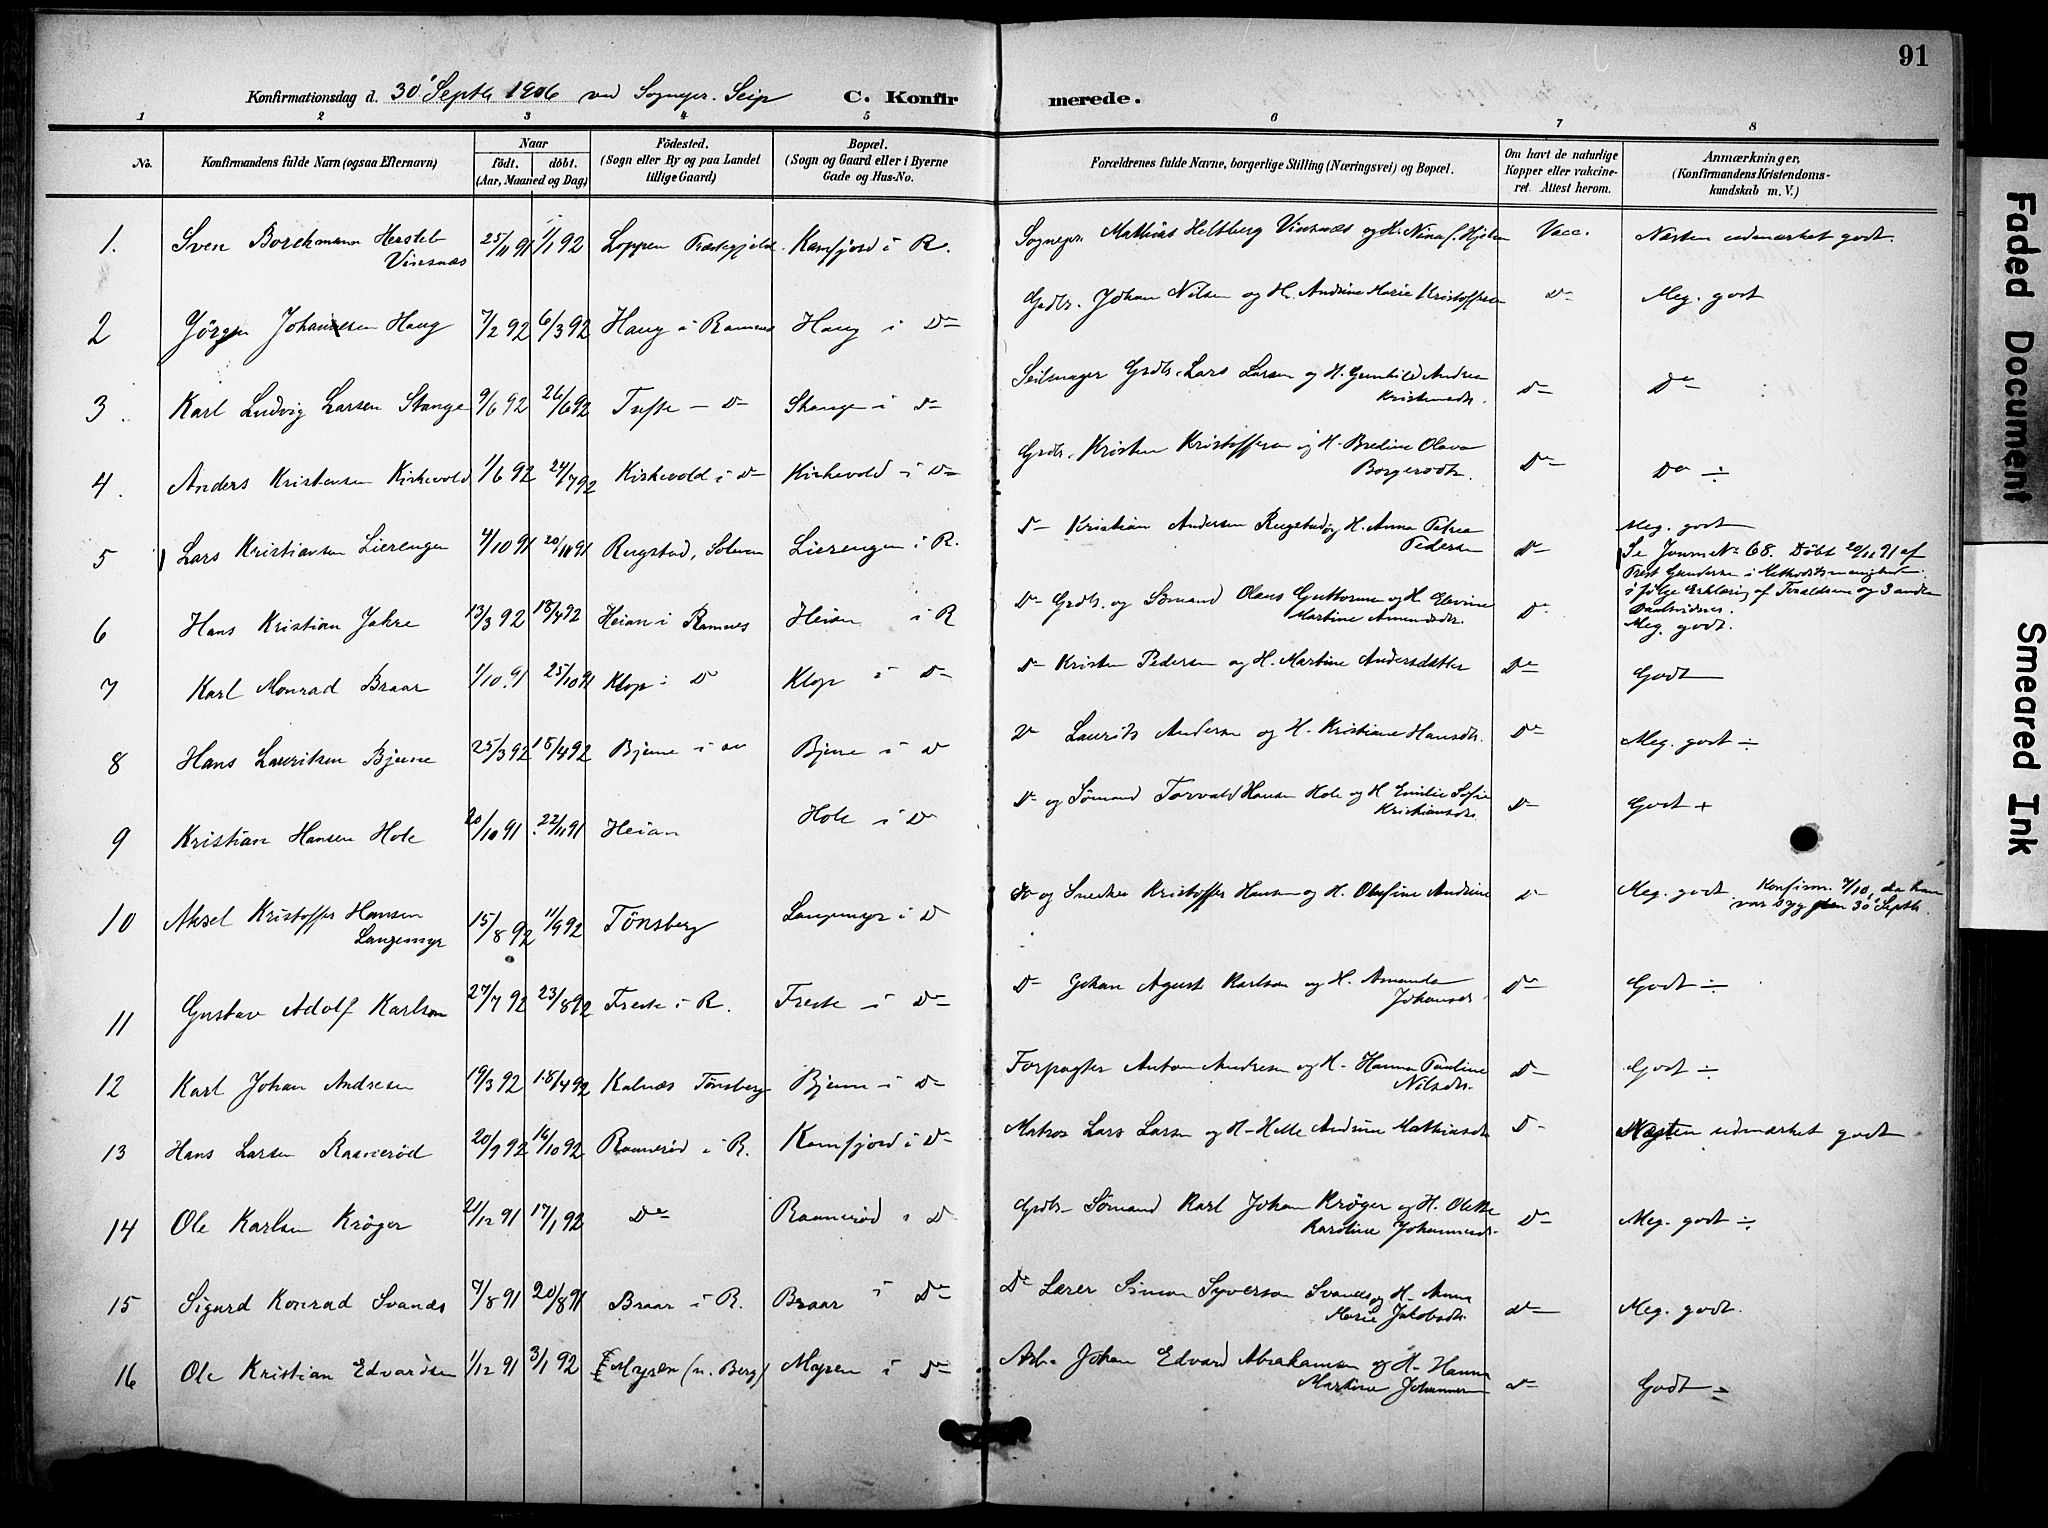 91
Konfirmationsdag d. 30' Septb 1906 ved Sognepr. Seip C. Konfirmerede.
1 2 3 4 5 6 7 8
No. Konfirmandens fulde Navn (ogsaa Efternavn) Naar födt. döbt. (Aar, Maaned og Dag) Födested. (Sogn eller By og paa Landet tillige Gaard) Bopæl. (Sogn og Gaard eller i Byerne Gade og Hus-No. Forældrenes fulde Navne, borgerlige Stilling (Næringsvei) og Bopæl. Om havt de naturlige Kopper eller vakcineret. Attest herom. Anmærkninger, (Konfirmandens Kristendomskundskab m. V.)
1. Sven Borchmann Hersteb Vinsnæs 25/11 91 1/1 92 Loppen Præstegjeld Kamfjord i R. Sognepr. Mathias Heltberg Vinsnæs og H. Nina f. Hjelm Vacc. Næsten udmærket godt.
2 Jörgen Johannesen Haug 7/2 92 6/3 92 Haug i Ramnes Haug i Do Grdb. Johan Nilsen og H. Andrine Marie Kristoffersen Do Meg. godt
3. Karl Ludvig Larsen Stange 9/6 92 26/6 92 Tufte - Do Stange i Do Seilmager Grdb. Lars Larsen og H. Gunhild Andrea Kristensdt. Do Do
4. Anders Kristensen Kirkevold 1/6 92 24/7 92 Kirkevold i Do Kirkevold i Do Grdb. Kristen Kristoffersen og H. Bredine Olava Borgersdt. Do Do ÷
5 Lars Kristiansen Lierengen 4/10 91 20/11 91 Rugstad, Solum Lierengen i R. Do Kristian Andersen Rugstad og H. Anna Petrea Pedersen Do Meg. godt
Se Journ No 68. Döbt 20/11 91 af
Præst Gundersen i Methodistmenighed
ifölge Erklæring af Forældrene og 3 andre
Daabsvidner.
6 Hans Kristian Jahre 13/3 92 18/4 92 Heian i Ramnes Heian i R Do Grdb. og Sömand Olaus Guttormsen og H. Elevine Martine Amundsdt. Do Meg. godt.
7 Karl Monrad Braar 1/10 91 25/10 91 Klop i Do Klop i Do Do Kristen Pedersen og H. Martine Andersdatter Do Godt
8 Hans Lauritsen Bjerne 25/3 92 18/4 92 Bjerne i Do Bjerne i Do Do Laurits Andersen og H. Kristiane Hansdt. Do Meg. godt ÷
9 Kristian Hansen Hole 20/10 91 22/11 91 Heian Hole i Do Do og Sömand Torvald Hansen Hole og H Emilie Sofie Kristiansdt. Do Godt +
10 Aksel Kristoffer Hansen Langemyr 15/8 92 11/9 92 Tönsberg Langemyr i Do Do og Snedker Kristoffer Hansen og H. Olufine Andrine Do Meg. godt. Konfirm. 7/10, da han var syg den 30' Septb.
11 Gustav Adolf Karlson 27/7 92 23/8 92 Freste i R. Freste i Do Do Johan Agust Karlson og H. Amanda Johansdt. Do Godt ÷
12 Karl Johan Andresen 19/3 92 18/4 92 Kalnæs Tönsberg Bjerne i Do Forpagter Anton Andresen og H. Hanna Pauline Nilsdt. Do Godt ÷
13 Hans Larsen Raanerød 20/9 92 16/10 92 Raanerød i R. Kamfjord i Do Matros Lars Larsen og H. Helle Andrine Mathiasdt Do Næsten udmærket godt
14 Ole Karlsen Kröger 21/12 91 17/1 92 Do Raanerød i Do Grdb. Sömand Karl Johan Kröger og H. Olette Karoline Johannesdt. Do Meg. godt ÷
15 Sigurd Konrad Svanæs 7/8 91 20/8 91 Braar i R. Braar i Do Do Lærer Simon Syverson Svanæs og H. Anna Marie Jakobsdt. Do Meg. godt.
16 Ole Kristian Edvardsen 1/12 91 3/1 92 Myren (u. Berg) Myren i Do Arb. Johan Edvard Abrahamsen og H. Hanna Martine Johannesen Do Godt ÷
Faded Document
Smeared Ink